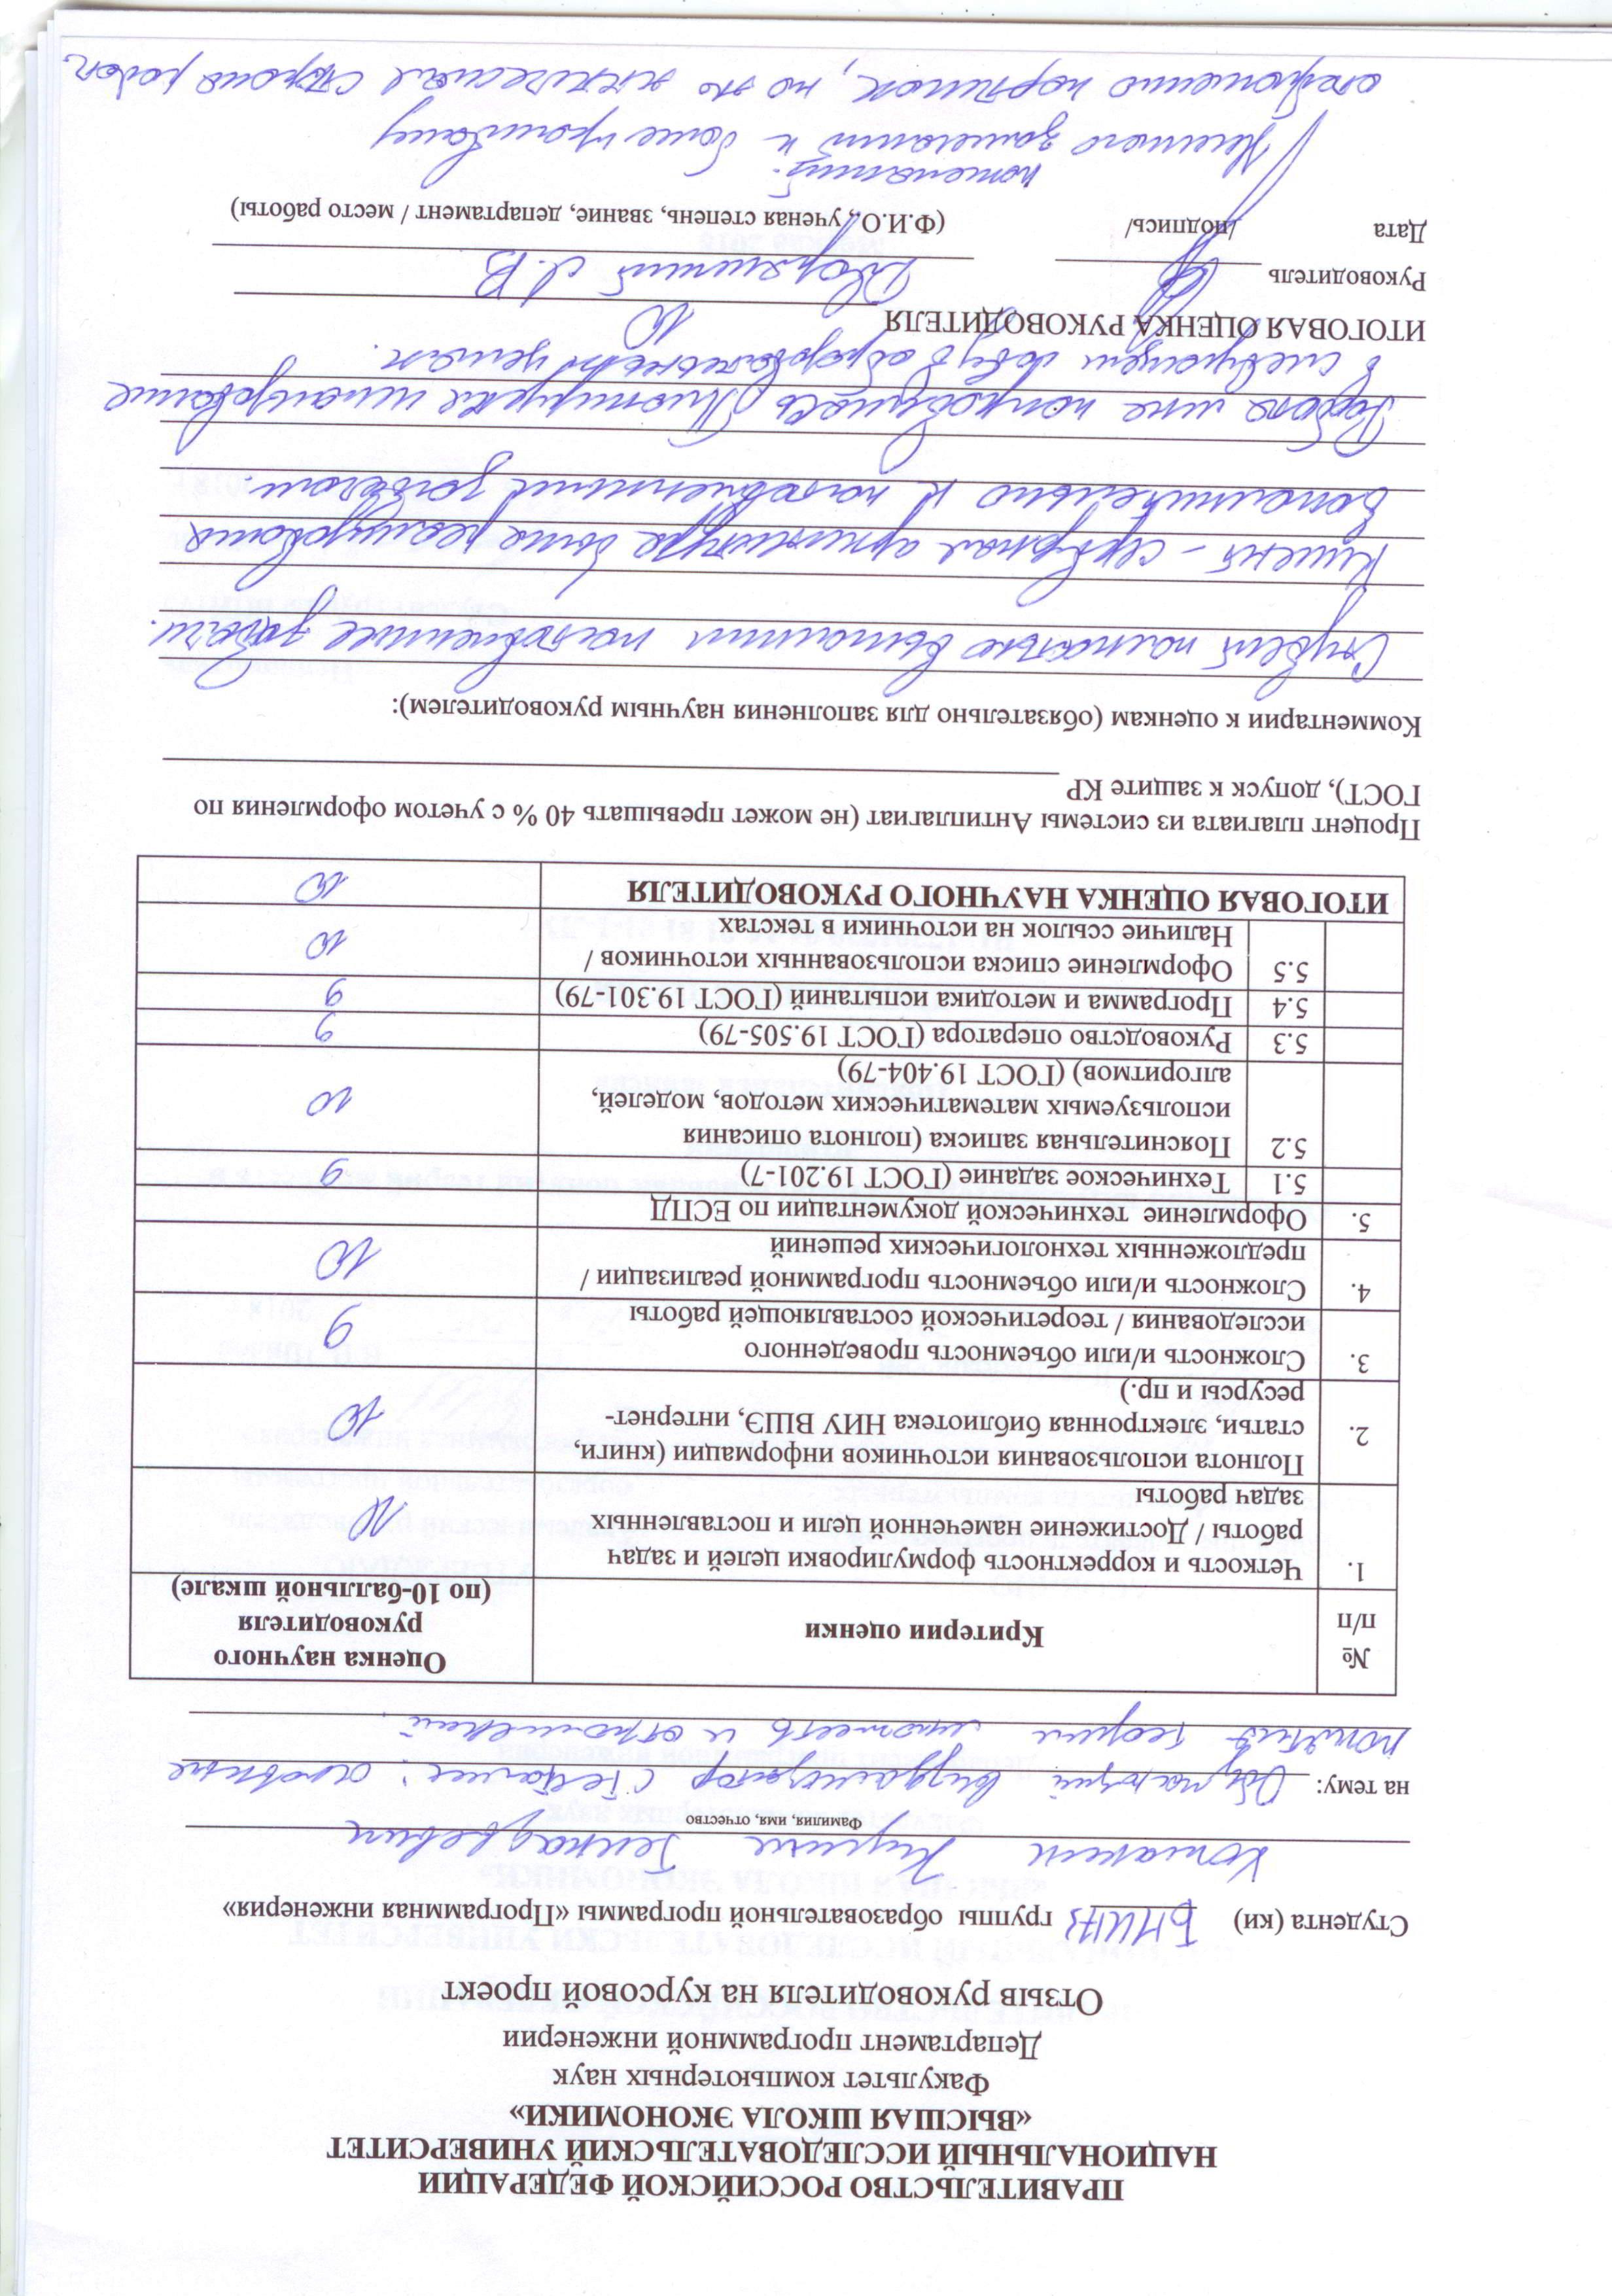 ПРАВИТЕЛЬСТВО РОССИЙСКОЙ ФЕДЕРАЦИИ
НАЦИОНАЛЬНЫЙ ИССЛЕДОВАТЕЛЬСКИЙ УНИВЕРСИТЕТ
«ВЫСШАЯ ШКОЛА ЭКОНОМИКИ»
Факультет компьютерных наук
Департамент программной инженерии
Отзыв руководителя на курсовой проект
Студента (ки) БПИ173 группы образовательной программы «Программная инженерия»
Геннадьевич
Фамилия, имя, отчество
на тему: Обучающий визуализатор с тестами: основные
понятия теории множеств и отношений.
№ п/п Критерии оценки Оценка научного руководителя (по 10-балльной шкале)
1. Четкость и корректность формулировки целей и задач
работы / Достижение намеченной цели и поставленных 10
задач работы
Полнота использования источников информации (книги,
2. статьи, электронная библиотека НИУ ВШЭ, интернет- 10
ресурсы и пр.)
3. Сложность и/или объемность проведенного
исследования / теоретической составляющей работы 9
4. Сложность и/или объемность программной реализации / 10
предложенных технологических решений
5. Оформление технической документации по ЕСПД
5.1 Техническое задание (ГОСТ 19.201-7) 9
5.2 Пояснительная записка (полнота описания
используемых математических методов, моделей, 10
алгоритмов) (ГОСТ 19.404-79)
5.3 Руководство оператора (ГОСТ 19.505-79) 9
5.4 Программа и методика испытаний (ГОСТ 19.301-79) 9
5.5 Оформление списка использованных источников / 10
Наличие ссылок на источники в текстах
ИТОГОВАЯ ОЦЕНКА НАУЧНОГО РУКОВОДИТЕЛЯ 10
Процент плагиата из системы Антиплагиат (не может превышать 40 % с учетом оформления по
ГОСТ), допуск к защите КР
Комментарии к оценкам (обязательно для заполнения научным руководителем):
Студент полностью выполнил поставленные задачи.
Клиент - серверная архитектура была реализована
дополнительно к поставленным задачам.
Работа мне понравилась. Планируется использование
в следующем году в образовательных целях.
ИТОГОВАЯ ОЦЕНКА РУКОВОДИТЕЛЯ 10
Руководитель Дворянский Л.В.
Дата /подпись/ (Ф.И.О., ученая степень, звание, департамент / место работы)
пожеланий.
Немного замечаний к более
, но это сторона работ.